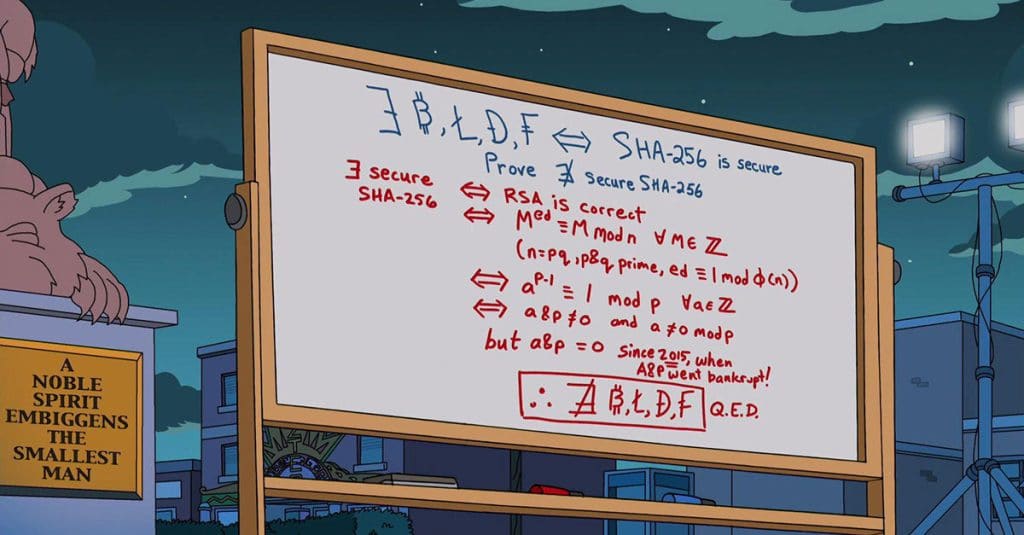 ∃ ₿, Ł, Đ, ₣ ⟺ SHA-256 is secure
Prove ∄ secure SHA-256
∃ secure SHA-256 ⟺ RSA is correct
⟺ M^ed ≡ M mod n ∀ M ∈ ℤ
(n=pq, p&q prime, ed ≡ 1 mod ϕ(n))
⟺ a^p-1 ≡ 1 mod p ∀ a ∈ ℤ
⟺ a&p ≠ 0 and a ≠ 0 mod p
but a&p = 0 since 2015, when
A&P went bankrupt!
∴ ∄ ₿, Ł, Đ, ₣ Q.E.D.
A
NOBLE
SPIRIT
EMBIGGENS
THE
SMALLEST
MAN